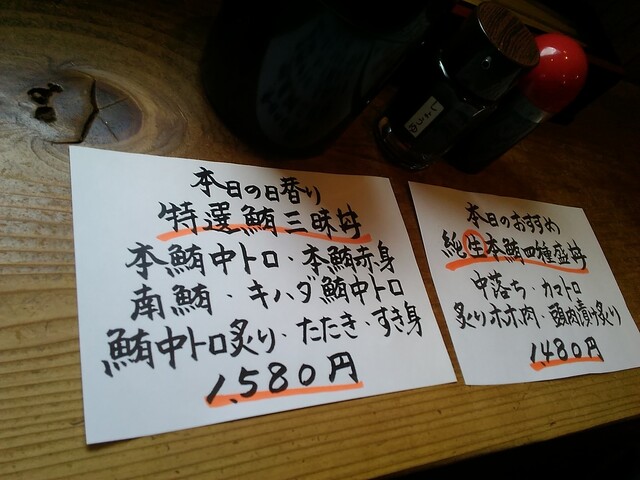 本日の日替り
特選鮪三昧丼
本鮪中トロ・本鮪赤身
南鮪・キハダ鮪中トロ
鮪中トロ炙り・たたき・すき身
1,580円
本日のおすすめ
純生本鮪四種盛丼
中落ち・カマトロ
炙りホホ肉・頭肉漬け炙り
1480円